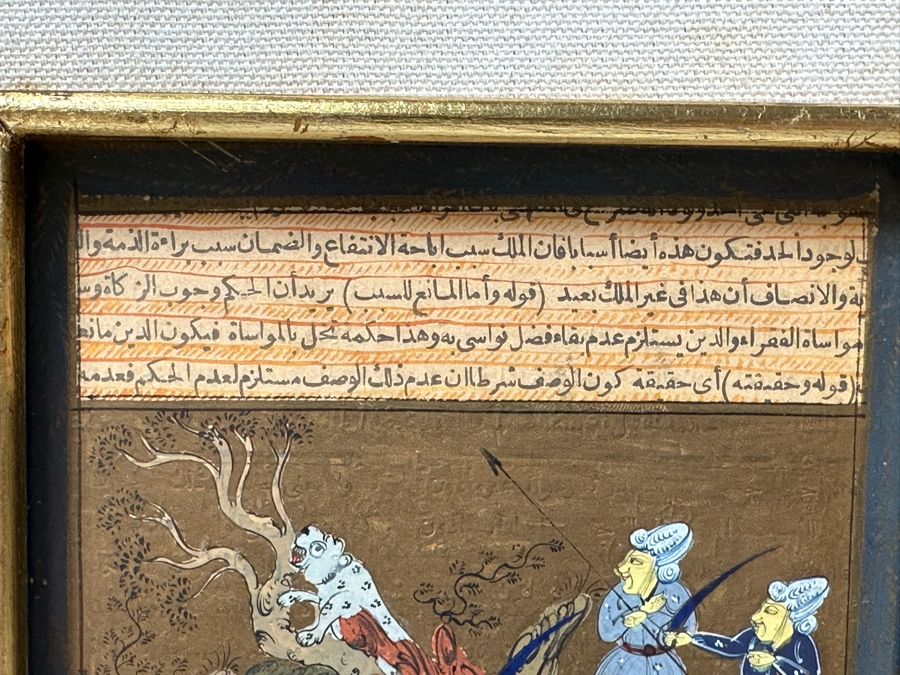 لوجود الحد فتكون هذه أيضا أسبابا فان الملك سبب اباحة الانتفاع والضمان سبب براءة الذمة
والانصاف أن هذا فى غير الملك بعيد (قوله وأما المانع للسبب) يريد أن الحكم وجوب الزكاة
مواساة الفقراء والدين يستلزم عدم بقاء فضل نواسى به وهذا حكمه تخل بالمواساة فيكون الدين
(قوله وحقيقته) أى حقيقة كون الوصف شرطا ان عدم ذلك الوصف مستلزم لعدم الحكم فعدمه